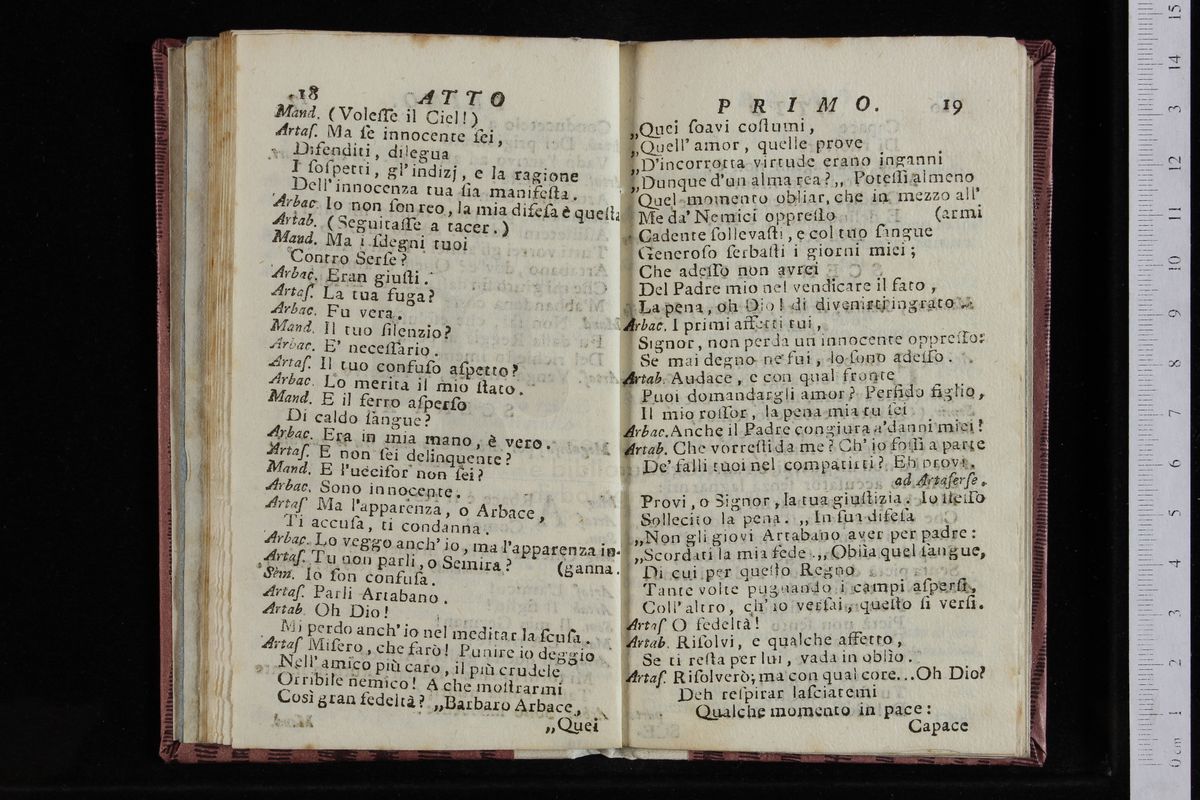 18 ATTO
Mand. (Voleſſe il Ciel!)
Artaſ. Ma ſe innocente ſei,
Difenditi, dilegua
I ſoſpetti, gl'indizj, e la ragione
Dell'innocenza tua ſia manifeſta.
Arbac. Io non ſon reo, la mia difeſa è queſta
Artab. (Seguitaſſe a tacer.)
Mand. Ma i ſdegni tuoi
Contro Serſe?
Arbac. Eran giuſti.
Artaſ. La tua fuga?
Arbac. Fu vera.
Mand. Il tuo ſilenzio?
Arbac. E' neceſſario.
Artaſ. Il tuo confuſo aſpetto?
Arbac. Lo merita il mio ſtato.
Mand. E il ferro aſperſo
Di caldo ſangue?
Arbac. Era in mia mano, è vero.
Artaſ. E non ſei delinquente?
Mand. E l'ucciſor non ſei?
Arbac. Sono innocente.
Artaſ Ma l'apparenza, o Arbace,
Ti accuſa, ti condanna.
Arbac. Lo veggo anch'io, ma l'apparenza in-
Artaſ. Tu non parli, o Semira? (ganna.
Sem. Io ſon confuſa.
Artaſ. Parli Artabano.
Artab. Oh Dio!
Mi perdo anch'io nel meditar la ſcuſa.
Artaſ Miſero, che farò! Punire io deggio
Nell'amico più caro, il più crudele
Orribile nemico! A che moſtrarmi
Così gran fedeltà? „Barbaro Arbace,
„Quei
PRIMO. 19
„Quei ſoavi coſtumi,
„Quell'amor, quelle prove
„D'incorrotta virtude erano inganni
„Dunque d'un alma rea?„ Poteſſi almeno
Quel momento obliar, che in mezzo all'
Me da' Nemici oppreſſo (armi
Cadente ſollevaſti, e col tuo ſangue
Generoſo ſerbaſti i giorni miei;
Che adeſſo non avrei
Del Padre mio nel vendicare il fato,
La pena, oh Dio! di divenirti ingrato.
Arbac. I primi affetti tui,
Signor, non perda un innocente oppreſſo:
Se mai degno ne fui, lo ſono adeſſo.
Artab. Audace, e con qual fronte
Puoi domandargli amor? Perfido figlio,
Il mio roſſor, la pena mia tu ſei
Arbac. Anche il Padre congiura a'danni miei!
Artab. Che vorreſti da me? Ch'io foſſi a parte
De' falli tuoi nel compatirti? Eh provi.
ad Artaſerſe.
Provi, o Signor, la tua giuſtizia. Io ſteſſo
Sollecito la pena. „In ſua difeſa
„Non gli giovi Artabano aver per padre:
„Scordati la mia fede.„ Oblìa quel ſangue,
Di cui per queſto Regno
Tante volte pugnando i campi aſperſi,
Coll'altro, ch'io verſai, queſto ſi verſi.
Artaſ O fedeltà!
Artab. Riſolvi, e qualche affetto,
Se ti reſta per lui, vada in oblìo.
Artaſ. Riſolverò; ma con qual core...Oh Dio?
Deh reſpirar laſciatemi
Qualche momento in pace:
Capace